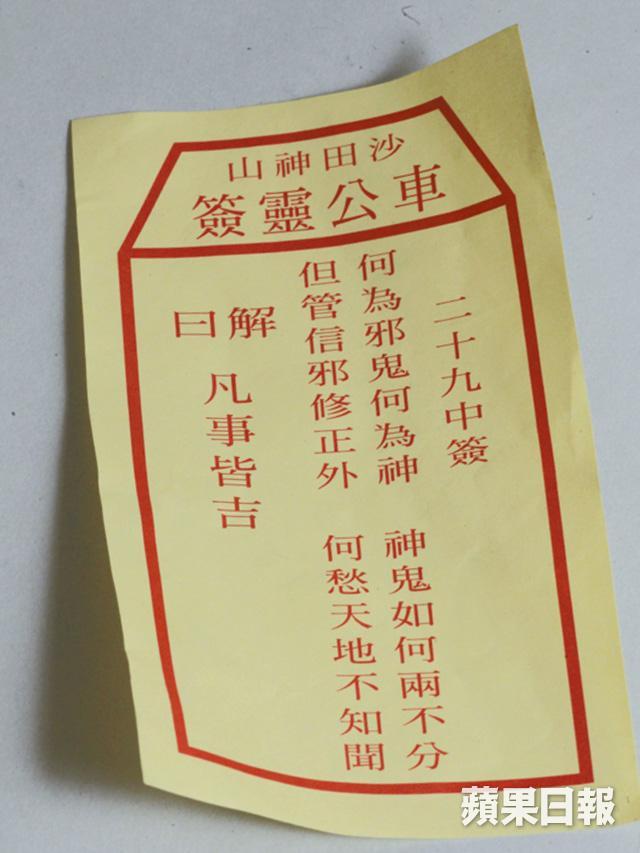 沙田神山
車公靈簽
二十九中簽
何為邪鬼何為神 神鬼如何兩不分
但管信邪修正外 何愁天地不知聞
解曰
凡事皆吉
蘋果日報